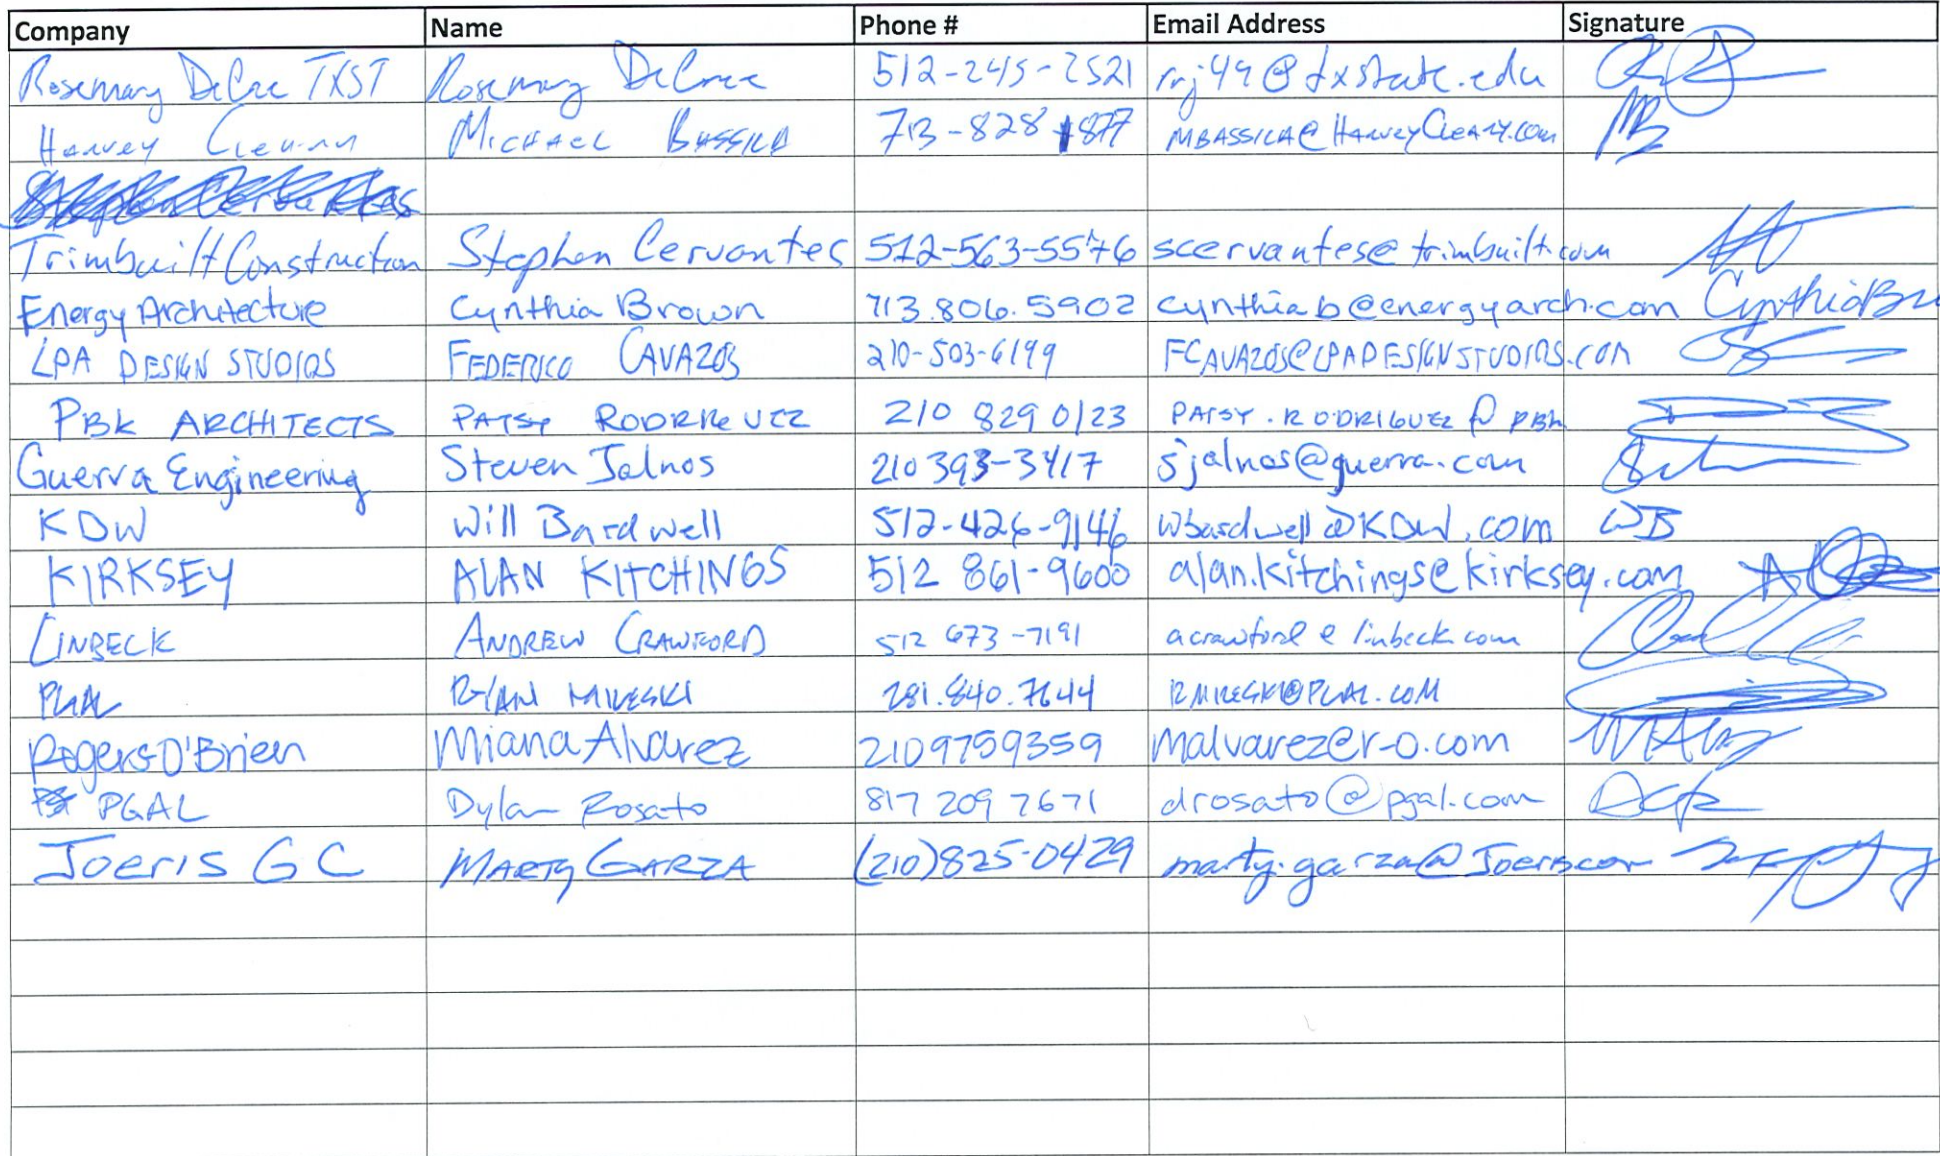 Company Name Phone # Email Address Signature
Rosemary DeCree TXST Rosemary DeCree 512-245-2521 rrj49@txstate.edu
Harvey Michael Bassila 713-828 1877 MBASSILA@HarveyCleary.com MB
Stephen Cervantes
Trimbuilt Construction Stephen Cervantes 512-563-5576 scervantes@trimbuilt.com
Energy Architecture Cynthia Brown 713.806.5902 cynthiab@energyarch.com Cynthia Br
LPA DESIGN STUDIOS FEDERICO CAVAZOS 210-503-6199 FCAVAZOS@LPADESIGNSTUDIOS.COM
PBK ARCHITECTS PATSY RODRIGUEZ 210 829 0123 PATSY.RODRIGUEZ @ PBK
Guerra Engineering Steven Jalnos 210 393-3417 sjalnos@guerra.com
KDW Will Bardwell 512-426-9146 wbardwell@KDW.com WB
KIRKSEY ALAN KITCHINGS 512 861-9600 alan.kitchings@kirksey.com
LINBECK ANDREW CRAWFORD 512 673-7191 acrawford@linbeck.com
PGAL RYAN MIKESKI 281.840.7644 RMIKESKI@PGAL.COM
Rogers-O'Brien Miana Alvarez 2109759359 malvarez@r-o.com
PGAL Dylan Rosato 817 209 7671 drosato@pgal.com
Joeris GC MARTY GARZA (210)825-0429 marty.garza@Joeris.com